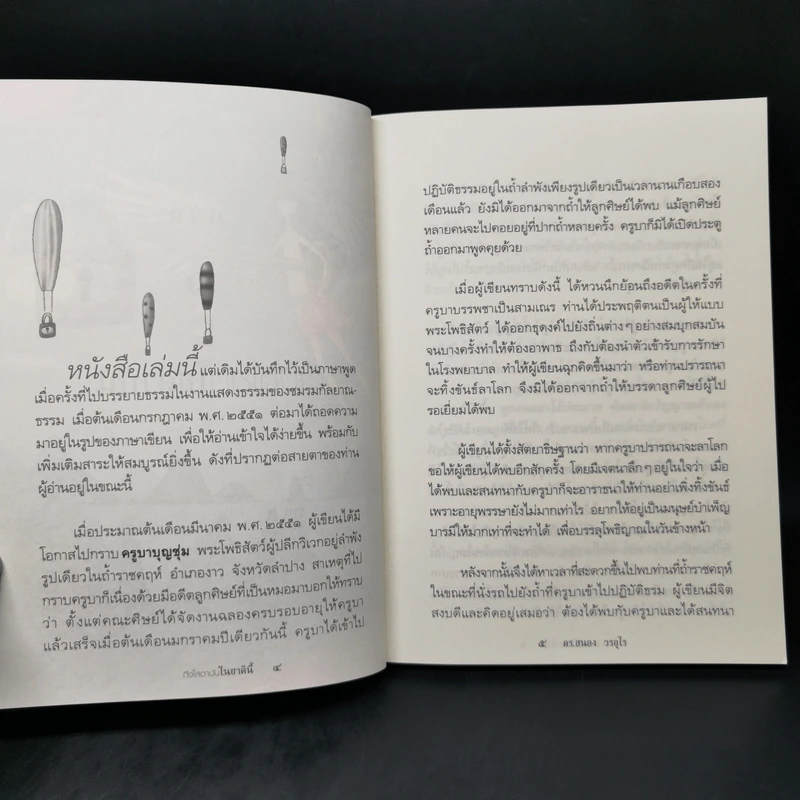 หนังสือเล่มนี้ แต่เดิมได้บันทึกไว้เป็นภาษาพูด
เมื่อครั้งที่ไปบรรยายธรรมในงานแสดงธรรมของชมรมกัลยาณ-
ธรรม เมื่อต้นเดือนกรกฎาคม พ.ศ. ๒๕๕๑ ต่อมาได้ถอดความ
มาอยู่ในรูปของภาษาเขียน เพื่อให้อ่านเข้าใจได้ง่ายขึ้น พร้อมกับ
เพิ่มเติมสาระให้สมบูรณ์ยิ่งขึ้น ดังที่ปรากฏต่อสายตาของท่าน
ผู้อ่านอยู่ในขณะนี้
เมื่อประมาณต้นเดือนมีนาคม พ.ศ. ๒๕๕๑ ผู้เขียนได้มี
โอกาสไปกราบ ครูบาบุญชุ่ม พระโพธิสัตว์ผู้ปลีกวิเวกอยู่ลำพัง
รูปเดียวในถ้ำราชคฤห์ อำเภองาว จังหวัดลำปาง สาเหตุที่ไป
กราบครูบาก็เนื่องด้วยมีอดีตลูกศิษย์ที่เป็นหมอมาบอกให้ทราบ
ว่า ตั้งแต่คณะศิษย์ได้จัดงานฉลองครบรอบอายุให้ครูบา
แล้วเสร็จเมื่อต้นเดือนมกราคมปีเดียวกันนี้ ครูบาได้เข้าไป
ถึงโสดาบันในชาตินี้ ๔
ปฏิบัติธรรมอยู่ในถ้ำลำพังเพียงรูปเดียวเป็นเวลานานเกือบสอง
เดือนแล้ว ยังมิได้ออกมาจากถ้ำให้ลูกศิษย์ได้พบ แม้ลูกศิษย์
หลายคนจะไปคอยอยู่ที่ปากถ้ำหลายครั้ง ครูบาก็มิได้เปิดประตู
ถ้ำออกมาพูดคุยด้วย
เมื่อผู้เขียนทราบดังนี้ ได้หวนนึกย้อนถึงอดีตในครั้งที่
ครูบาบรรพชาเป็นสามเณร ท่านได้ประพฤติตนเป็นผู้ให้แบบ
พระโพธิสัตว์ ได้ออกธุดงค์ไปยังถิ่นต่างๆอย่างสมบุกสมบัน
จนบางครั้งทำให้ต้องอาพาธ ถึงกับต้องนำตัวเข้ารับการรักษา
ในโรงพยาบาล ทำให้ผู้เขียนฉุกคิดขึ้นมาว่า หรือท่านปรารถนา
จะทิ้งขันธ์ลาโลก จึงมิได้ออกจากถ้ำให้บรรดาลูกศิษย์ผู้ไป
รอเยี่ยมได้พบ
ผู้เขียนได้ตั้งสัตยาธิษฐานว่า หากครูบาปรารถนาจะลาโลก
ขอให้ผู้เขียนได้พบอีกสักครั้ง โดยมีเจตนาลึกๆอยู่ในใจว่า เมื่อ
ได้พบและสนทนากับครูบาก็จะอาราธนาให้ท่านอย่าเพิ่งทิ้งขันธ์
เพราะอายุพรรษายังไม่มากเท่าไร อยากให้อยู่เป็นมนุษย์บำเพ็ญ
บารมีให้มากเท่าที่จะทำได้ เพื่อบรรลุโพธิญาณในวันข้างหน้า
หลังจากนั้นจึงได้หาเวลาที่สะดวกขึ้นไปพบท่านที่ถ้ำราชคฤห์
ในขณะที่นั่งรถไปยังถ้ำที่ครูบาเข้าไปปฏิบัติธรรม ผู้เขียนมีจิต
สงบดีและคิดอยู่เสมอว่า ต้องได้พบกับครูบาและได้สนทนา
๕ ดร.สนอง วรอุไร